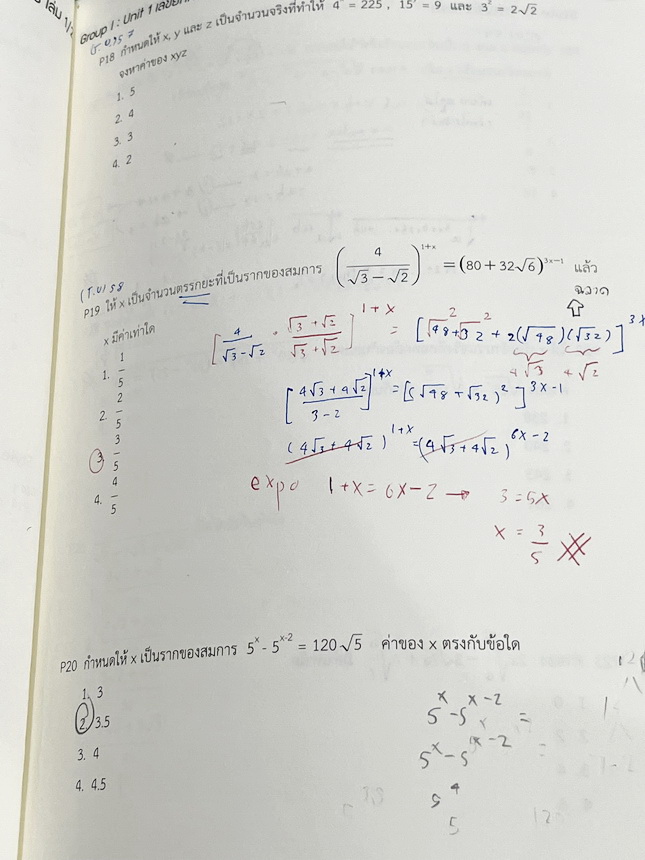 Group I : Unit 1
P18 กำหนดให้ x, y และ z เป็นจำนวนจริงที่ทำให้ 4ˣ = 225 , 15ʸ = 9 และ 3ᶻ = 2√2
จงหาค่าของ xyz
1. 5
2. 4
3. 3
4. 2
P19 ให้ x เป็นจำนวนตรรกยะที่เป็นรากของสมการ (4/(√3 − √2))^(1+x) = (80 + 32√6)^(3x−1) แล้ว
x มีค่าเท่าใด
ฉลาด
[4/(√3−√2) · (√3+√2)/(√3+√2)]^(1+x) = [√48² + √32² + 2(√48)(√32)]^3x
4√3 4√2
1. 1/5
[(4√3+4√2)/(3−2)]^(1+x) = [(√48+√32)²]^(3x−1)
2. 2/5
(4√3+4√2)^(1+x) = (4√3+4√2)^(6x−2)
3. 3/5
expo 1+x = 6x−2 → 3 = 5x
4. 4/5
x = 3/5
P20 กำหนดให้ x เป็นรากของสมการ 5ˣ - 5ˣ⁻² = 120√5 ค่าของ x ตรงกับข้อใด
1. 3
2. 3.5
3. 4
4. 4.5
5ˣ − 5ˣ⁻² =
5ˣ − 5ˣ⁻² =
5⁴
5